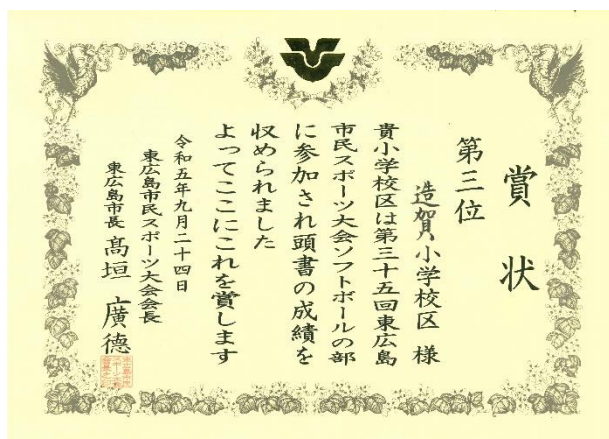 賞状
第三位
造賀小学校区 様
貴小学校区は第三十五回東広島
市民スポーツ大会ソフトボールの部
に参加され頭書の成績を
収められました
よってここにこれを賞します
令和五年九月二十四日
東広島市民スポーツ大会会長
東広島市長 髙垣 廣德